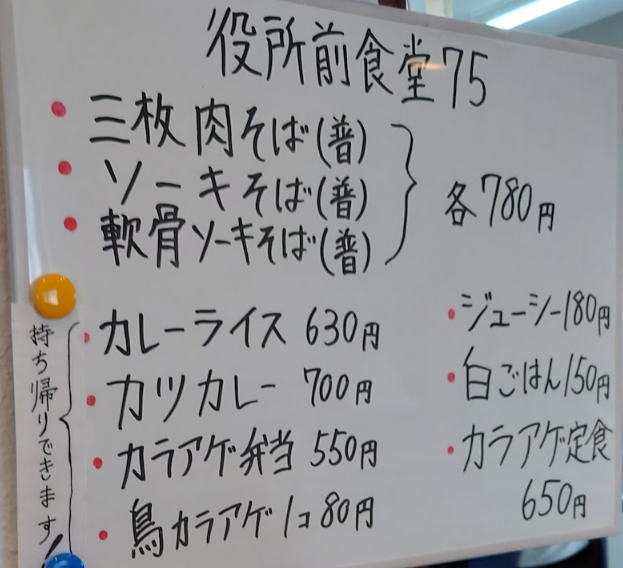 役所前食堂75
三枚肉そば(普)
ソーキそば(普)
軟骨ソーキそば(普)
各780円
持ち帰りできます!
カレーライス 630円
カツカレー 700円
カラアゲ弁当 550円
鳥カラアゲ1コ80円
ジューシー180円
白ごはん150円
カラアゲ定食
650円